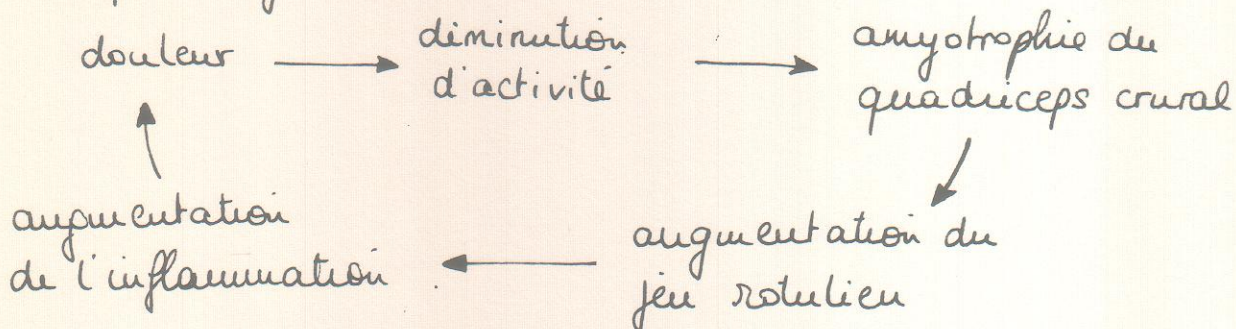 douleur
diminution
d'activité
amyotrophie du
quadriceps crural
augmentation du
jeu rotulien
augmentation
de l'inflammation